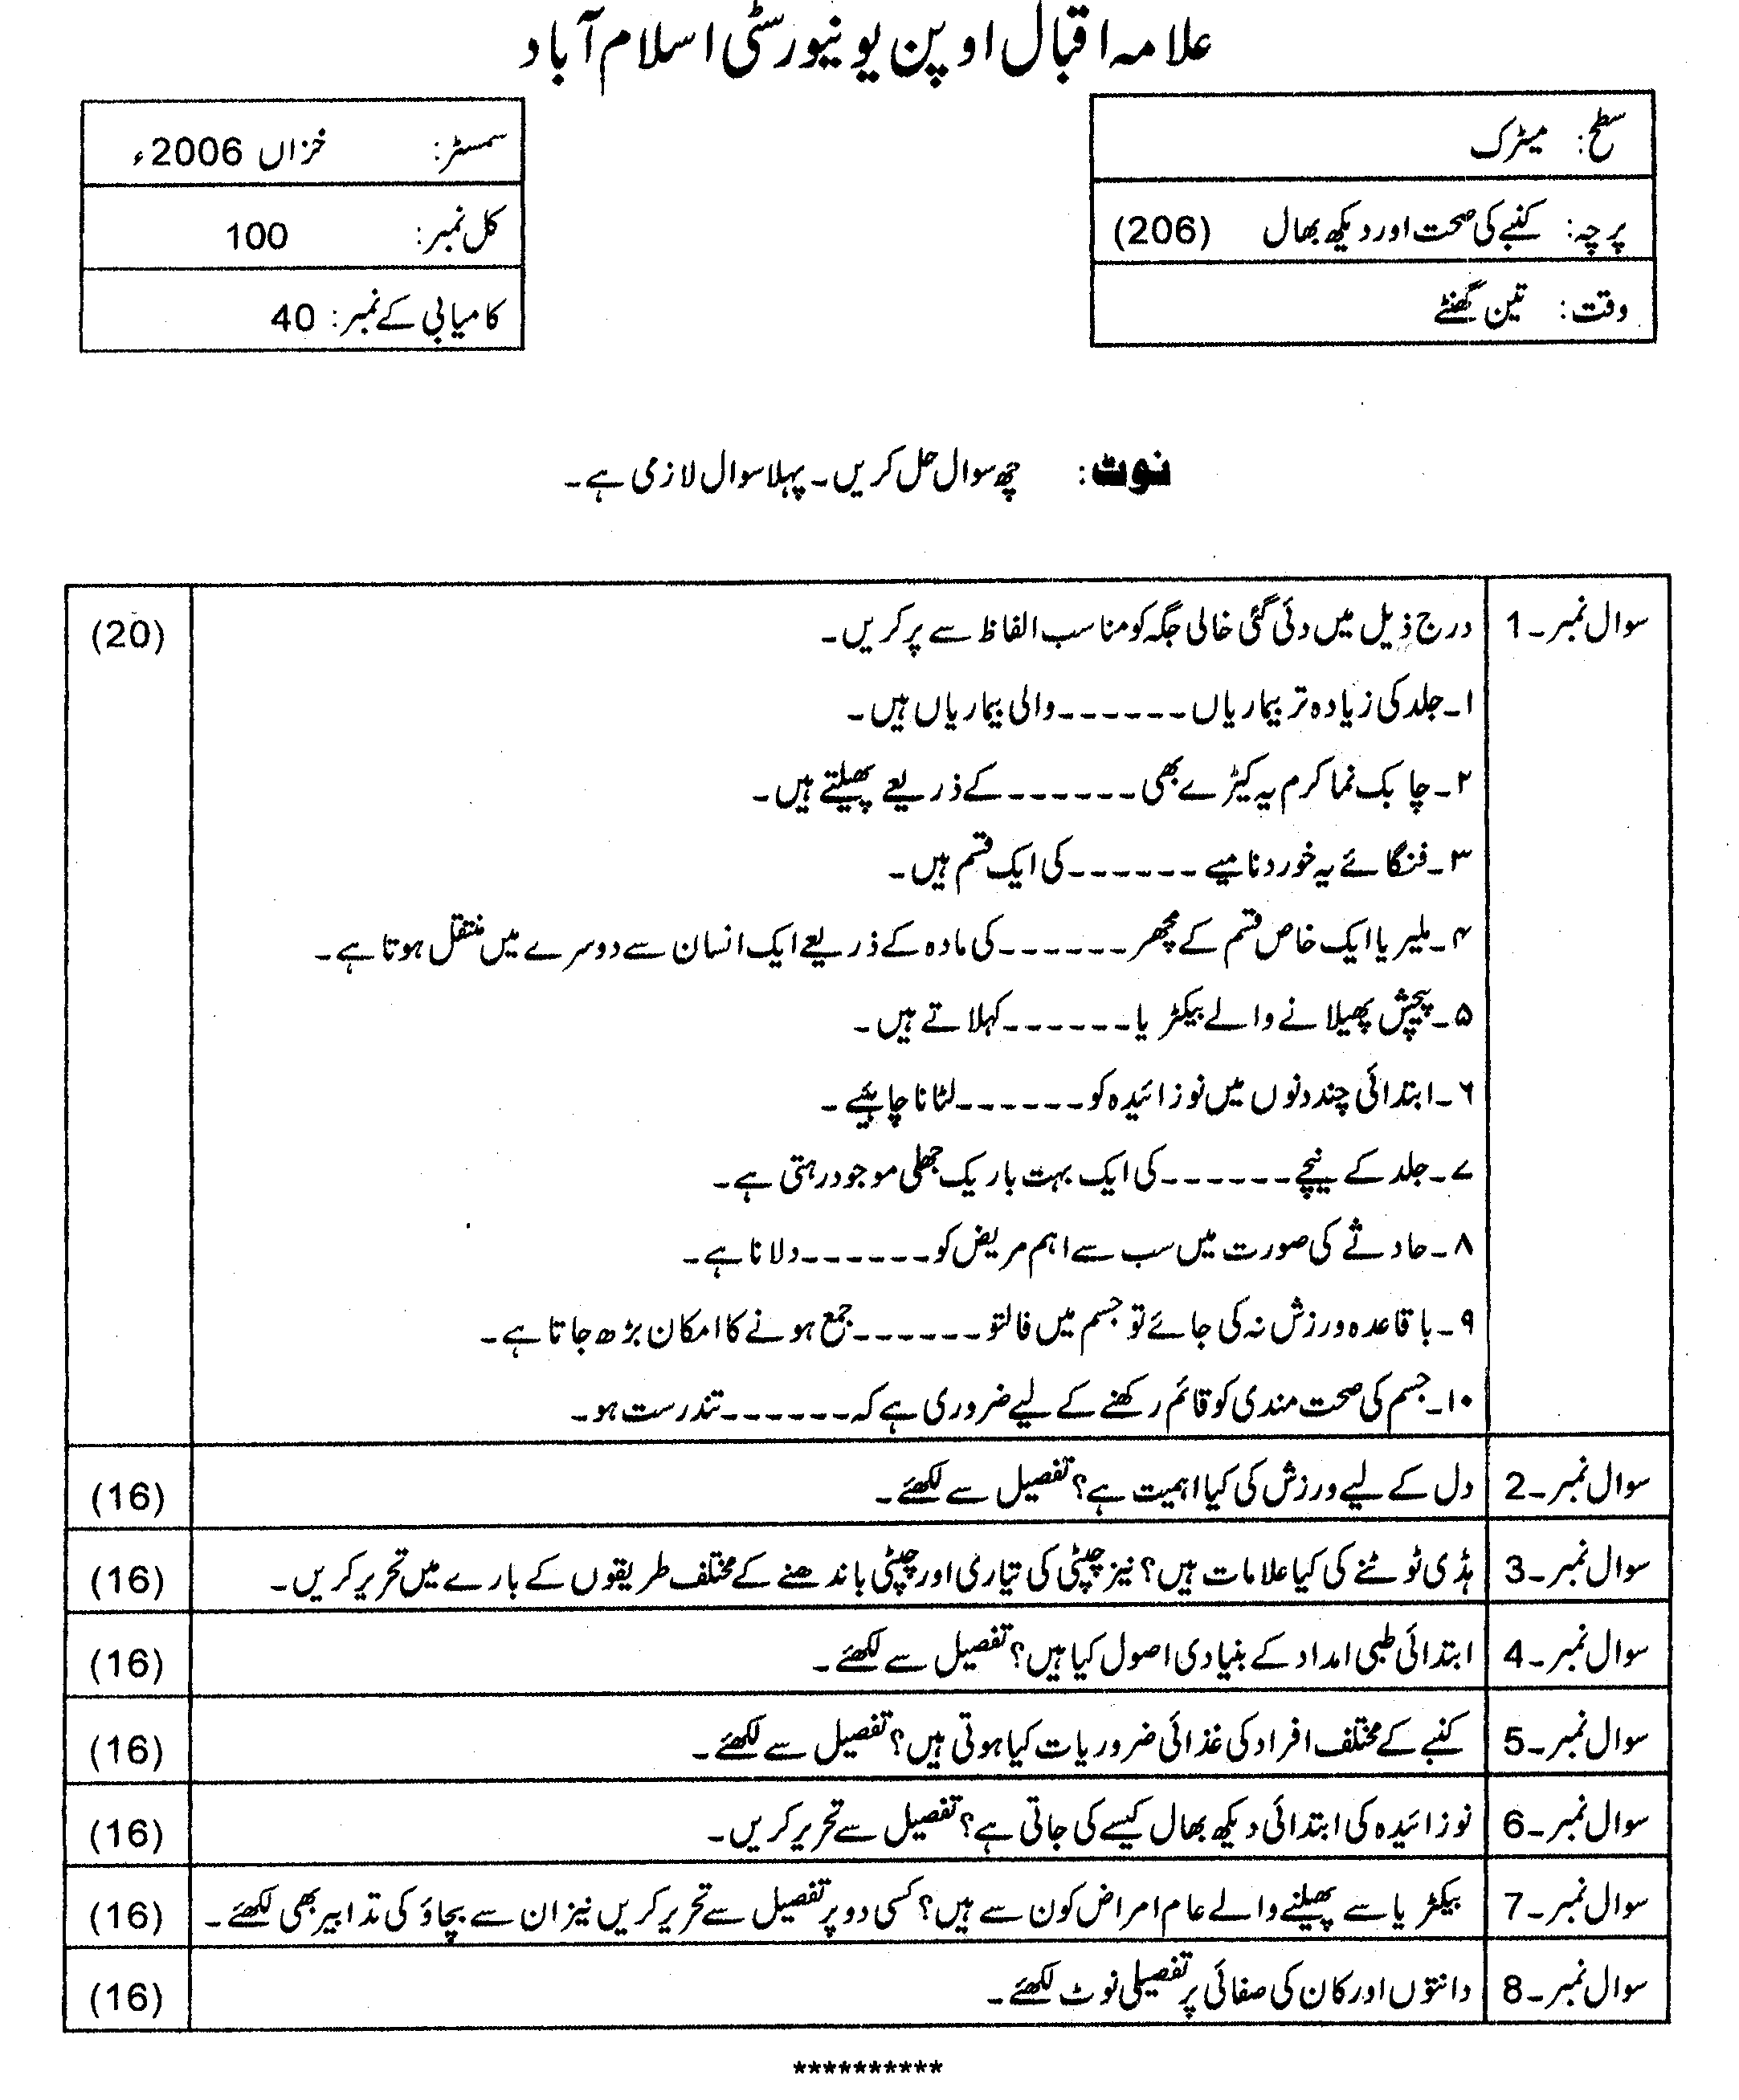 علامہ اقبال اوپن یونیورسٹی اسلام آباد
سطح: میٹرک
سمسٹر: خزاں 2006ء
پرچہ: کنبے کی صحت اور دیکھ بھال (206)
کل نمبر: 100
وقت: تین گھنٹے
کامیابی کے نمبر: 40
نوٹ: چھ سوال حل کریں۔ پہلا سوال لازمی ہے۔
سوال نمبر۔1 درج ذیل میں دئی گئی خالی جگہ کو مناسب الفاظ سے پر کریں۔ (20)
۱۔ جلد کی زیادہ تر بیماریاں ------ والی بیماریاں ہیں۔
۲۔ چابک نما کرم یہ کیڑے بھی ------ کے ذریعے پھیلتے ہیں۔
۳۔ فنگائے یہ خورد نامیے ------ کی ایک قسم ہیں۔
۴۔ ملیریا ایک خاص قسم کے مچھر ------ کی مادہ کے ذریعے ایک انسان سے دوسرے میں منتقل ہوتا ہے۔
۵۔ پیچش پھیلانے والے بیکٹریا ------ کہلاتے ہیں۔
۶۔ ابتدائی چند دنوں میں نوزائیدہ کو ------ لٹانا چاہئیے۔
۷۔ جلد کے نیچے ------ کی ایک بہت باریک جھلی موجود رہتی ہے۔
۸۔ حادثے کی صورت میں سب سے اہم مریض کو ------ دلانا ہے۔
۹۔ باقاعدہ ورزش نہ کی جائے تو جسم میں فالتو ------ جمع ہونے کا امکان بڑھ جاتا ہے۔
۱۰۔ جسم کی صحت مندی کو قائم رکھنے کے لیے ضروری ہے کہ ------ تندرست ہو۔
سوال نمبر۔2 دل کے لیے ورزش کی کیا اہمیت ہے؟ تفصیل سے لکھئے۔ (16)
سوال نمبر۔3 ہڈی ٹوٹنے کی کیا علامات ہیں؟ نیز چپٹی کی تیاری اور چپٹی باندھنے کے مختلف طریقوں کے بارے میں تحریر کریں۔ (16)
سوال نمبر۔4 ابتدائی طبی امداد کے بنیادی اصول کیا ہیں؟ تفصیل سے لکھئے۔ (16)
سوال نمبر۔5 کنبے کے مختلف افراد کی غذائی ضروریات کیا ہوتی ہیں؟ تفصیل سے لکھئے۔ (16)
سوال نمبر۔6 نوزائیدہ کی ابتدائی دیکھ بھال کیسے کی جاتی ہے؟ تفصیل سے تحریر کریں۔ (16)
سوال نمبر۔7 بیکٹریا سے پھیلنے والے عام امراض کون سے ہیں؟ کسی دو پر تفصیل سے تحریر کریں نیز ان سے بچاؤ کی تدابیر بھی لکھئے۔ (16)
سوال نمبر۔8 دانتوں اور کان کی صفائی پر تفصیلی نوٹ لکھئے۔ (16)
**********